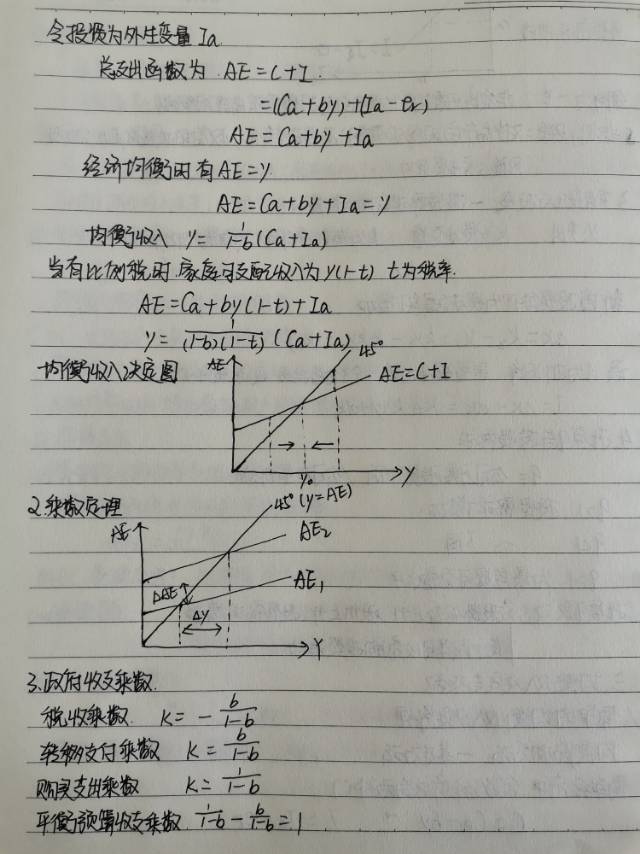 令投资为外生变量 Ia
总支出函数为 AE=C+I
=(Ca+by)+(Ia-er)
AE=Ca+by+Ia
经济均衡时有AE=y
AE=Ca+by+Ia=y
均衡收入 y=1/(1-b)(Ca+Ia)
当有比例税时 家庭可支配收入为y(1-t) t为税率.
AE=Ca+by(1-t)+Ia
y=1/((1-b)(1-t))(Ca+Ia)
均衡收入决定图
AE
45°
AE=C+I
y₀
Y
2.乘数定理
AE
45°(y=AE)
AE₂
AE₁
ΔAE
Δy
Y
3.政府收支乘数.
税收乘数 K=-b/(1-b)
转移支付乘数 K=b/(1-b)
购买支出乘数 K=1/(1-b)
平衡预算收支乘数 1/(1-b)-b/(1-b)=1